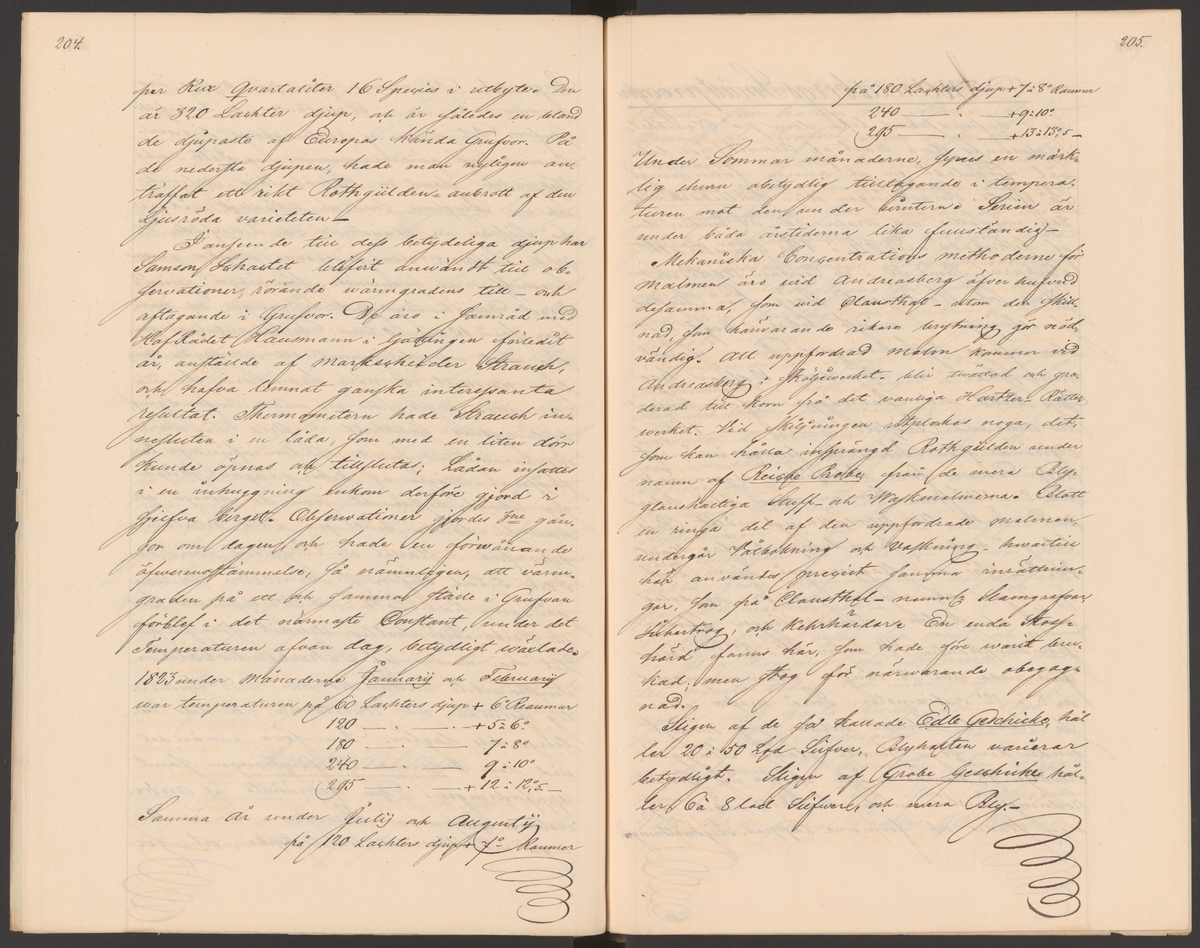 204.
per Kux Quartaliter 16 Species i utbyte. Den
är 320 Lachter djup, och är således en bland
de djupaste af Europas kända Grufvor. På
de nedersta djupen, hade man nyligen an-
träffat ett rikt Rothgülden-anbrott af den
ljusröda varieteten —
I anseende till dess betydeliga djup har
Samson Schactet blifvit användt till ob-
servationer, rörande wärmgradens till- och
aftagande i Grufvor. De äro i samråd med
HofRådet Hausmann i Götingen förledit
år, anstälde af Markscheider Strauch,
och hafva lemnat ganska interessanta
resultat. Thermometern hade Strauch in-
nesluten i en låda, som med en liten dörr
kunde öpnas och tillslutas; Lådan insattes
i en inhuggning enkom derföre gjord i
sjelfva berget. Observationer gjordes 3ne gån-
gor om dagen, och hade en förwånande
öfwerensstämmelse, så nämnligen, att värm-
graden på ett och samma ställe i Grufvan
förblef i det närmaste Constant, under det
Temperaturen ofvan dag, betydligt wäxlade.
1823 under Månaderne Januarij och Februarij
war temperaturen på 60 Lachters djup + 6° Reaumur
120 — . — . — +5 à 6°
180 — . — 7 à 8°
240 — . — 9 à 10°
295 — . — +12 à 12°,5 —
Samma år under Julij och Augustij
på 120 Lachters djup + 7° Raumur
205.
på 180 Lachters djup + 7 à 8° Raumur
240 — . — +9 à 10°
295 — . — +13 à 13°,5 —
Under Sommar månaderne, synes en märk-
lig ehuru obetydlig tilltagande i tempera-
turen mot den under wintern. Serien är
under båda årstiderna lika fullständig —
Mekaniska Concentrations methoderne för
malmen äro vid Andreasberg äfven
desamma, som vid Clausthal — utom den skill-
nad, som härvarande rikare brytning gör nöd-
vändig. All uppfordrad malm kommer vid
Andreasberg i Sköljwerket, blir twättad och gra-
derad till korn på det vanliga Hartzer-Rätter
werket. Vid Sköljningen utplockas noga, det,
som kan hålla insprängd Rothgülden under
namn af Reiche Probe, från de mera Bly-
glanshaltiga Stuff- och Waskmalmerna. Blott
en ringa del af den uppfordrade malmen,
undergår Våtbokning och Vaskning — hwartill
här användes precist samma inrättnin-
gar, som på Clausthal — Slamgrafvar,
och Kehrhärdar. En enda Stoss-
härd fanns här, som hade förr warit bru-
kad, men stog för närwarande obegag-
nad.
Sligen af de så kallade Edle Geschicke, hål-
ler 20 à 50 Lod Silfver, Blyhalten varierar
betydligt. Sligen af Grobe Geschicke hål-
ler 6 à 8 lod Silfver, och mera Bly. —